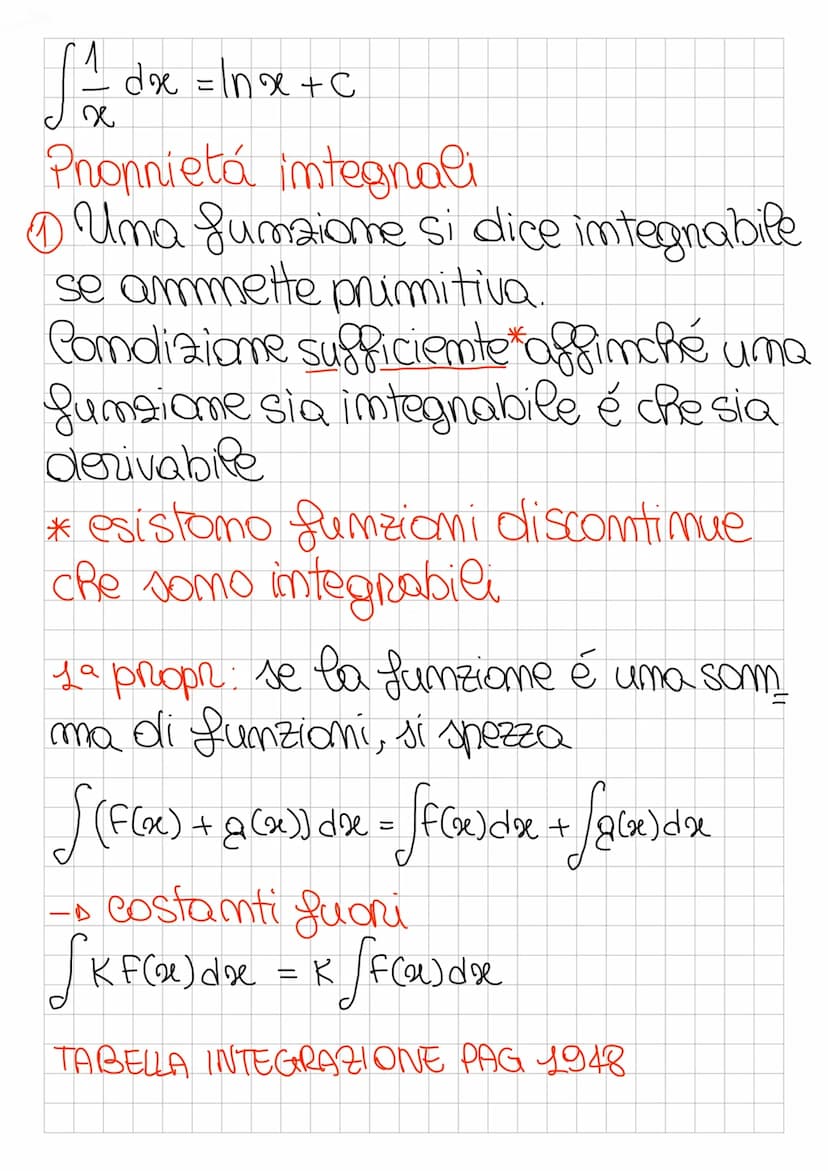 ∫ 1/x dx = ln x + C
Proprietá integrali
① Una funzione si dice integrabile
se ammette primitiva.
Condizione sufficiente* affinché una
funzione sia integrabile é che sia
derivabile
* esistono funzioni discontinue
che sono integrabili
1ª propr: se la funzione é una som=
ma di funzioni, si spezza
∫(F(x) + g(x)) dx = ∫F(x) dx + ∫g(x) dx
→ costanti fuori
∫ K F(x) dx = K ∫F(x) dx
TABELLA INTEGRAZIONE PAG 1948